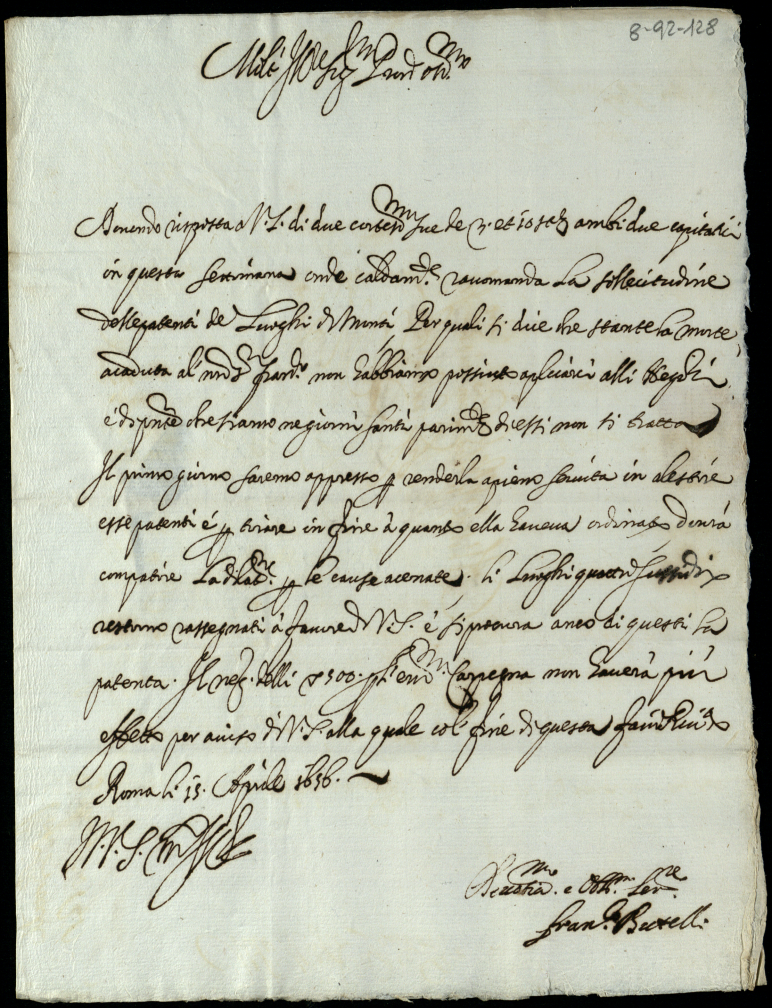 8-92-128
Molt Ill.re Sig.r Pron. oss.mo
Devendo risposta a V.S. di due cortes.me sue de 3. et 10 ambi due capitati
in questa settimana onde caldam.te racomanda la sollecitudine
delle patenti de Luoghi di Monti Per quali si dice che stante la morte
acaduta al non habbiamo possuto aplicarci alli
che siamo ne giorni santi parim.te di essi non si tratta
Il primo giorno saremo appresso p renderla apieno servita in alestire
esse patenti é p tirare in fine à quanto ella haveva ordinato dovrà
compatire la p le cause acenate. li Luoghi quattro
restorno rassegnati à favore di V.S. é si procura anco di questi la
patenta. Il neg. delli 500. Carpegna non haverà più
effetto per aviso di V.S. alla quale col fine di questa
Roma li 15. Aprile 1656.
D. V. S. M. Ill.re
Devotiss.mo e Obb.mo Ser.re
Fran.co